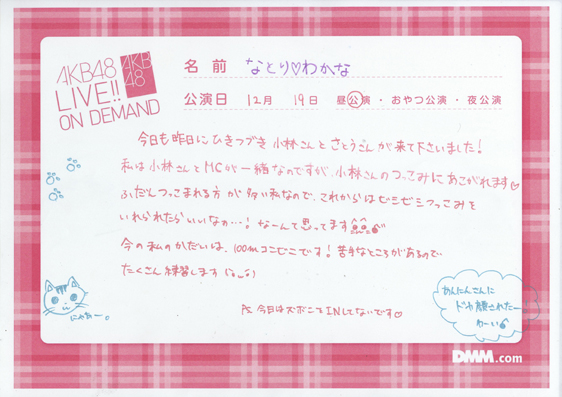 AKB48
LIVE!!
ON DEMAND
AKB
48
名前 なとり♡わかな
公演日 12月 19日 昼公演・おやつ公演・夜公演
今日も昨日にひきつづき小林さんとさとうさんが来て下さいました!
私は小林さんとMCが一緒なのですが、小林さんのつっこみにあこがれます♡
ふだんつっこまれる方が多い私なので、これからはビシビシつっこみを
いれられたらいいなぁ…! なーんて思ってます
今の私のかだいは、100mコンビニです! 苦手なところがあるので
たくさん練習します
P.S. 今日はズボンをINしてないです♡
にゃあー。
あんにんさんに
ドヤ顔されたー
わーい
DMM.com